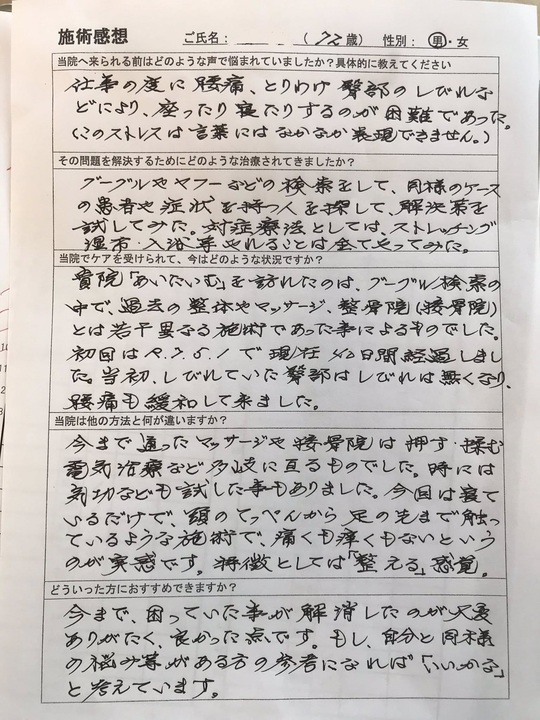 施術感想 ご氏名： （72歳） 性別：男・女
当院へ来られる前はどのような声で悩まれていましたか？具体的に教えてください
仕事の度に腰痛、とりわけ臀部のしびれな
どにより、座ったり寝たりするのが困難であった。
(このストレスは言葉にはなかなか表現できません。)
その問題を解決するためにどのような治療されてきましたか？
グーグルやヤフーなどの検索をして、同様のケース
の患者や症状を持つ人を探して、解決策を
試してみた。対症療法としては、ストレッチング
湿布・入浴等やれることは全てやってみた。
当院でケアを受けられて、今はどのような状況ですか？
貴院「あいたいむ」を訪れたのは、グーグル検索の
中で、過去の整体やマッサージ、整骨院(接骨院)
とは若干異なる施術であった事によるものでした。
初回は R.7.5.1で現在 日間経過しまし
た。当初、しびれていた臀部はしびれは無くなり、
腰痛も緩和して来ました。
当院は他の方法と何が違いますか？
今まで通ったマッサージや接骨院は押す・揉む
電気治療など多岐に亘るものでした。時には
気功なども試した事もありました。今回は寝て
いるだけで、頭のてっぺんから足の先まで触っ
ているような施術で、痛くも痒くもないという
のが実感です。特徴としては「整える」感覚。
どういった方におすすめできますか？
今まで、困っていた事が解消したのが大変
ありがたく、良かった点です。もし、自分と同様
の悩み等がある方の参考になれば「いいかな」
と考えています。